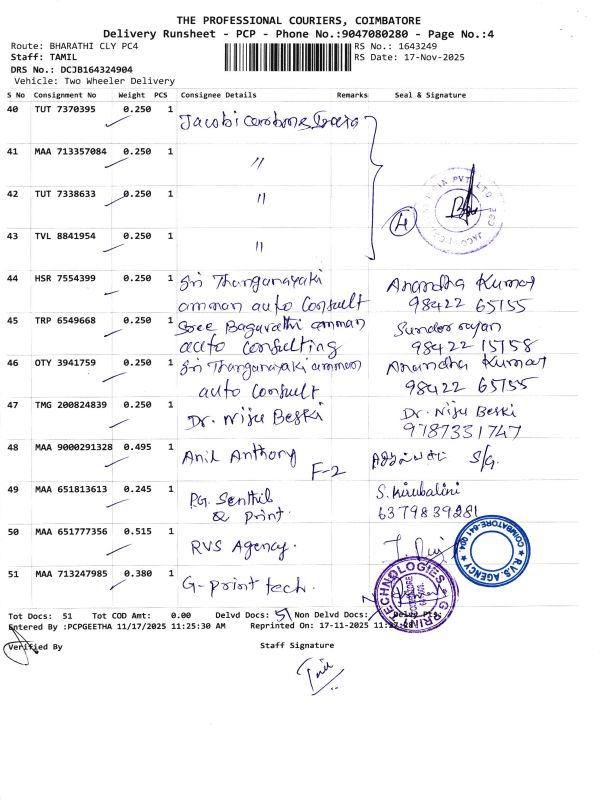 THE PROFESSIONAL COURIERS, COIMBATORE
Delivery Runsheet - PCP - Phone No.:9047080280 - Page No.:4
Route: BHARATHI CLY PC4 RS No.: 1643249
Staff: TAMIL RS Date: 17-Nov-2025
DRS No.: DCJB164324904
Vehicle: Two Wheeler Delivery
S No Consignment No Weight PCS Consignee Details Remarks Seal & Signature
40 TUT 7370395 0.250 1 Jacobi Carbons
41 MAA 713357084 0.250 1 "
42 TUT 7338633 0.250 1 "
43 TVL 8841954 0.250 1 "
4
44 HSR 7554399 0.250 1 Sri Thanganayaki Anandha Kumar
amman auto Consult 98422 65155
45 TRP 6549668 0.250 1 Sree Bagavathi amman Sundar rajan
auto Consulting 98422 15158
46 OTY 3941759 0.250 1 Sri Thanganayaki amman Anandha Kumar
auto Consult 98422 65155
47 TMG 200824839 0.250 1 Dr. Niju Beski Dr. Niju Beski
9787331747
48 MAA 9000291328 0.495 1 Anil Anthony F-2 S/G.
49 MAA 651813613 0.245 1 P.G. Senthil S. Kirubalini
& Print. 6379839281
50 MAA 651777356 0.515 1 RVS Agency.
R.V.S. AGENCY
COIMBATORE-641 004.
51 MAA 713247985 0.380 1 G-Print tech.
G-PRINT TECHNOLOGIES
Tot Docs: 51 Tot COD Amt: 0.00 Delvd Docs: 51 Non Delvd Docs: Delvd
Entered By :PCPGEETHA 11/17/2025 11:25:30 AM Reprinted On: 17-11-2025
Verified By Staff Signature